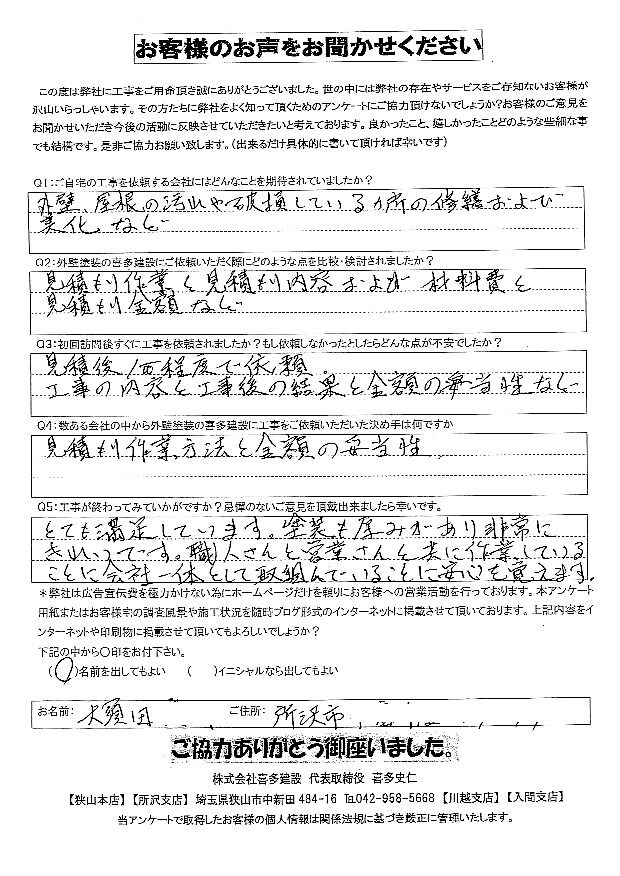 お客様のお声をお聞かせください
この度は弊社に工事をご用命頂き誠にありがとうございました。世の中には弊社の存在やサービスをご存知ないお客様が
沢山いらっしゃいます。その方たちに弊社をよく知って頂くためのアンケートにご協力頂けないでしょうか?お客様のご意見を
お聞かせいただき今後の活動に反映させていただきたいと考えております。良かったこと、嬉しかったことどのような些細な事
でも結構です。是非ご協力お願い致します。(出来るだけ具体的に書いて頂ければ幸いです)
Q1:ご自宅の工事を依頼する会社にはどんなことを期待されていましたか?
外壁、屋根の汚れや破損している箇所の修繕および
美化、など
Q2:外壁塗装の喜多建設にご依頼いただく際にどのような点を比較・検討されましたか?
見積もり作業と見積もり内容および材料費と
見積もり金額など
Q3:初回訪問後すぐに工事を依頼されましたか?もし依頼しなかったとしたらどんな点が不安でしたか?
見積後1週程度で依頼。
工事の内容と工事後の結果と金額の妥当性など
Q4:数ある会社の中から外壁塗装の喜多建設に工事をご依頼いただいた決め手は何ですか
見積もり作業方法と金額の妥当性
Q5:工事が終わってみていかがですか?忌憚のないご意見を頂戴出来ましたら幸いです。
とても満足しています。塗装も厚みがあり非常に
きれいです。職人さんと営業さんと共に作業している
ことに会社一体として取組んでいることに安心を覚えます。
*弊社は広告宣伝費を極力かけない為にホームページだけを頼りにお客様への営業活動を行っております。本アンケート
用紙またはお客様宅の調査風景や施工状況を随時ブログ形式のインターネットに掲載させて頂いております。上記内容をイ
ンターネットや印刷物に掲載させて頂いてもよろしいでしょうか?
下記の中から〇印をお付下さい。
(〇)名前を出してもよい ( )イニシャルなら出してもよい
お名前: 大須田 ご住所: 所沢市
ご協力ありがとう御座いました。
株式会社喜多建設 代表取締役 喜多史仁
【狭山本店】【所沢支店】 埼玉県狭山市中新田484-16 ℡042-958-5668 【川越支店】【入間支店】
当アンケートで取得したお客様の個人情報は関係法規に基づき厳正に管理いたします。